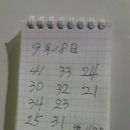 9月18日
41 33 24
30 32 21
34 23
25 31